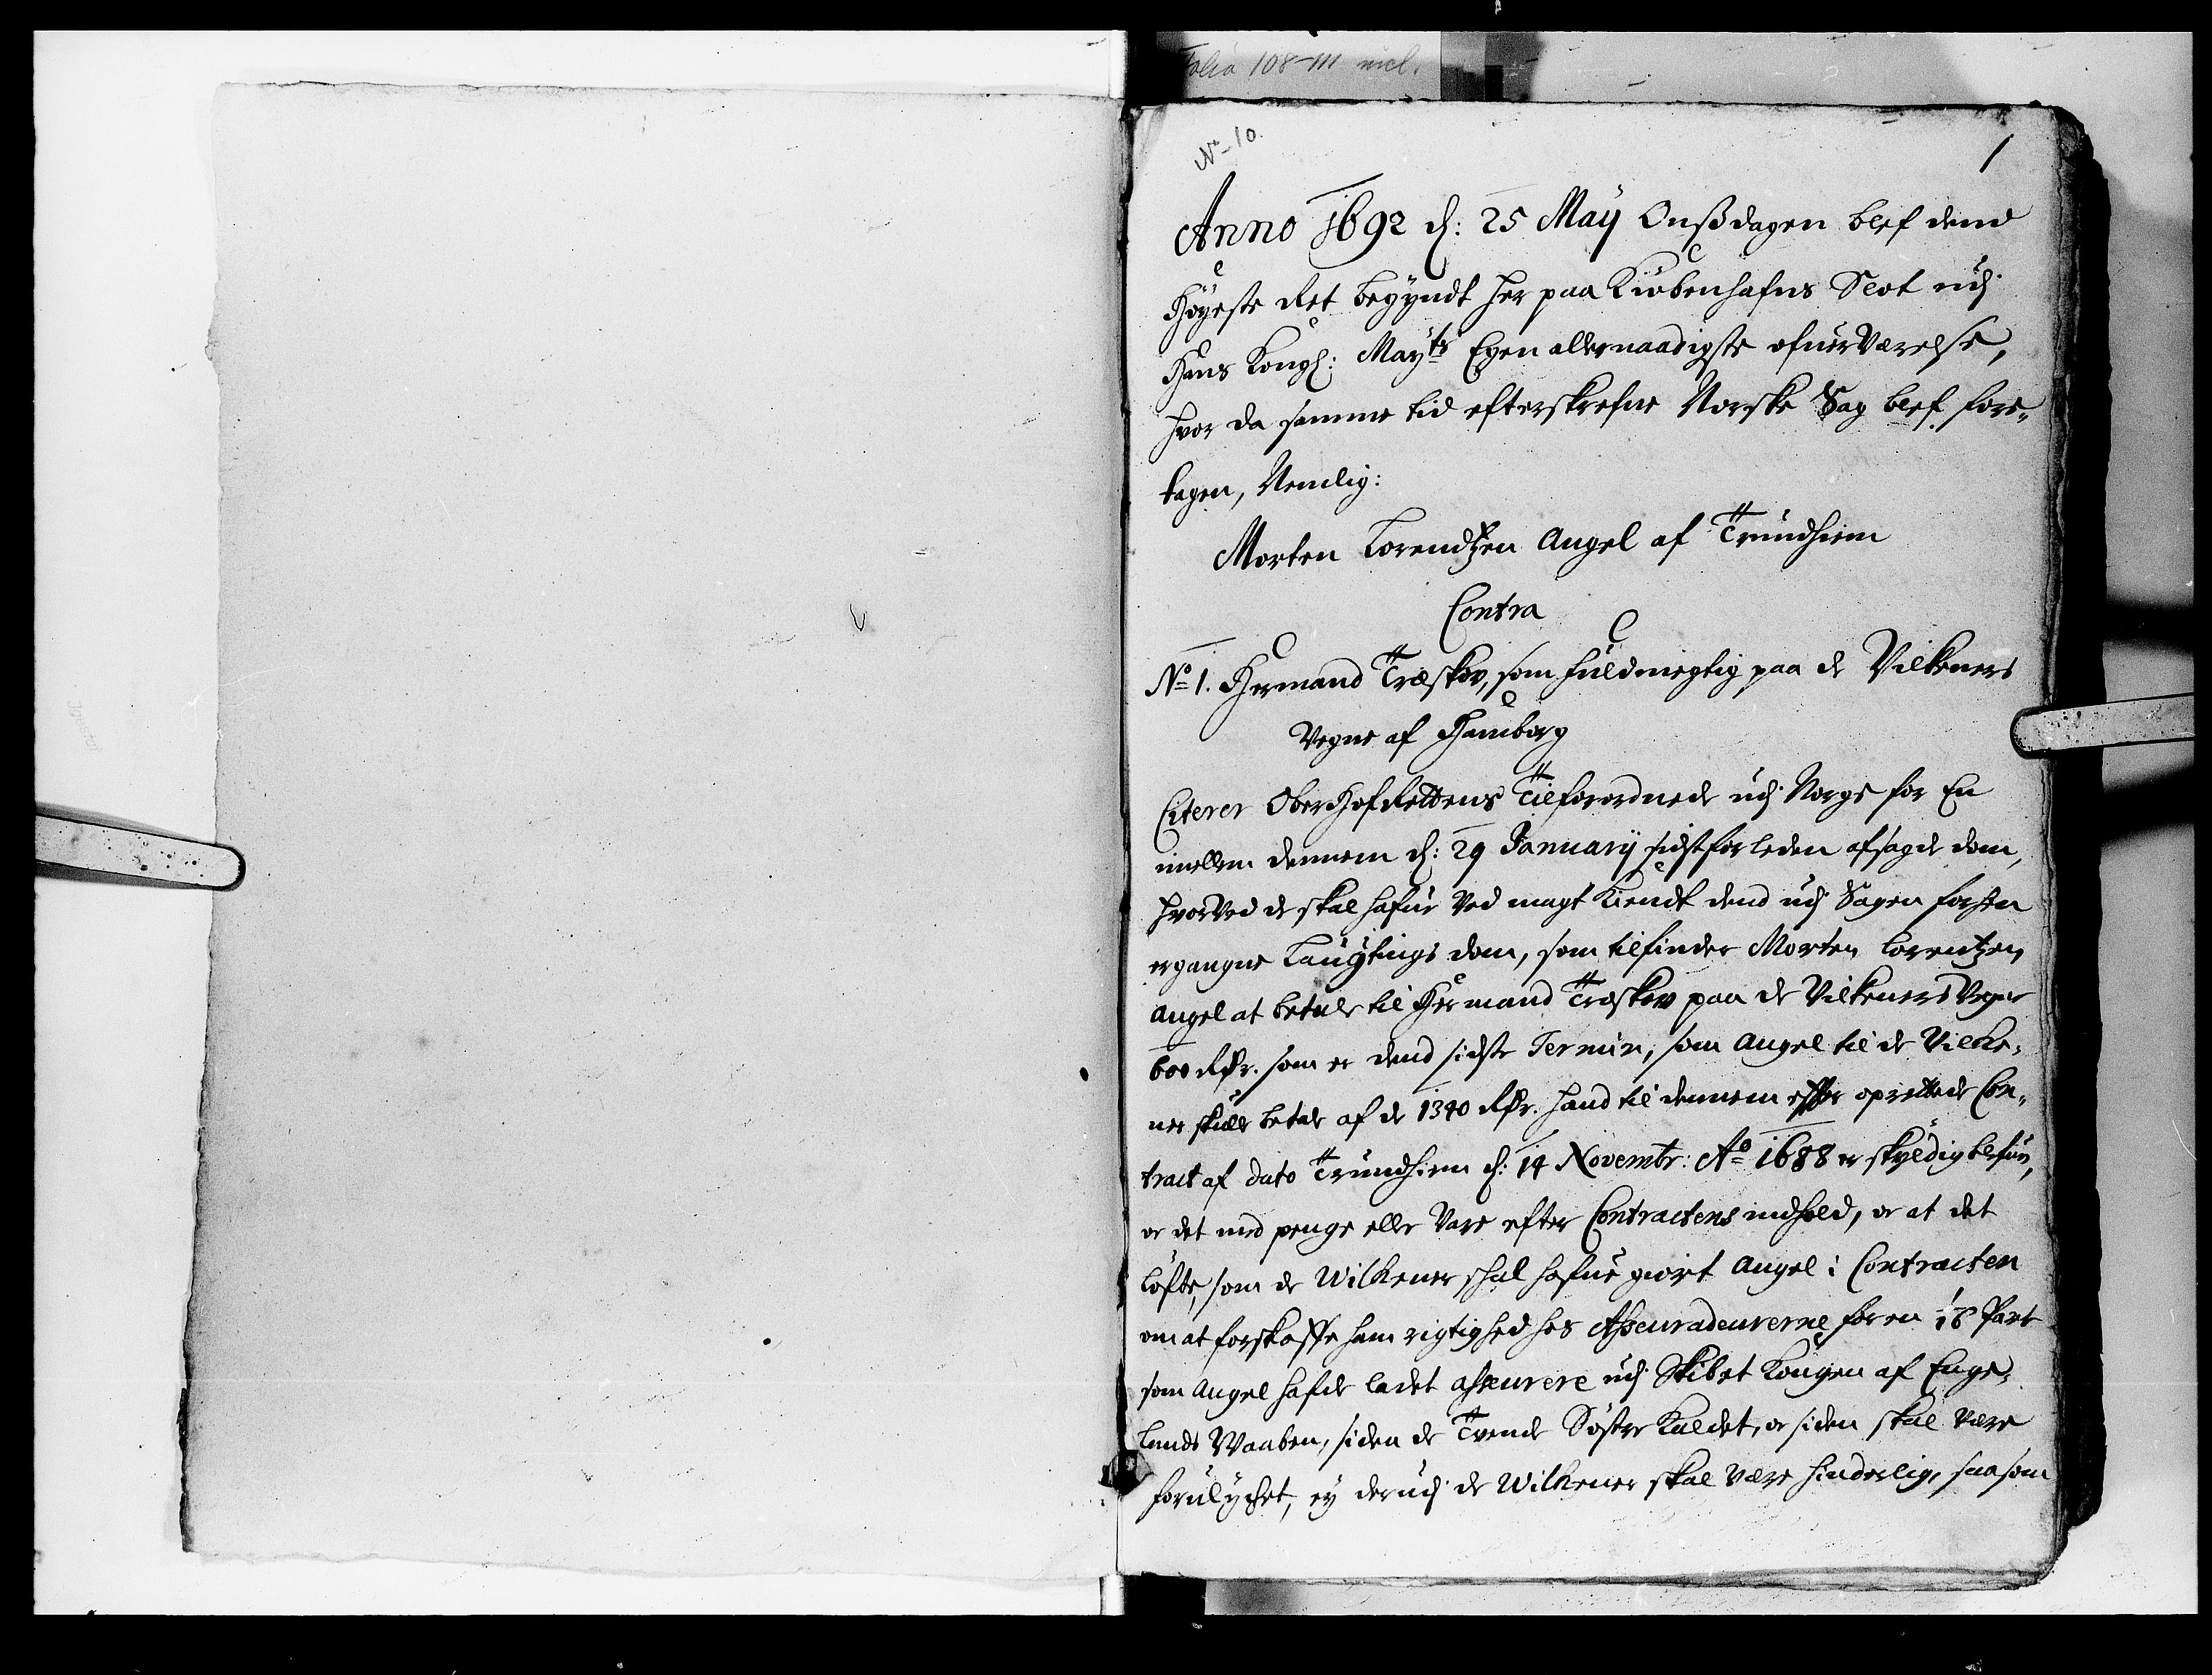 Folia 108-111 incl.
No 10.
1
Anno 1692 d: 25 Maÿ Onßdagen blef dend
Høyeste Ret begyndt her paa Kiøbenhafns Slot udj
Hans Kongl: Mayts Egen allernaadigste ofuerværelse,
hvor da samme tid efterskrefne Norske Sag blef fore-
tagen, Nemlig:
Morten Lorendtzen Angel af Trundhiem
Contra
No 1. Hermand Træskov, som fuldmegtig paa de Vilkeners
Vegne af Hamborg
Citerer OberHofRettens Tilforordnede udj Norge for En
imellem dennem d: 29 Januarij sidstforleden afsagde dom,
hvorved de skal hafue ved magt kiendt dend udj Sagen forhen
ergangne Laugtings dom, som tilfinder Morten Lorentzen
Angel at betale til Hermand Træskov paa de Vilkeners Vegne
600 Rdr. som er dend sidste Termin, som Angel til de Vilke-
ner skulle betale af de 1340 Rdr. hand til dennem efter oprettede Con-
tract af dato Trundhiem d: 14 Novembr: Ao 1688 er skyldig blefuen,
or det med penge eller Vare efter Contractens indhold, or at det
løfte, som de Wilkener schal hafue giort Angel i Contracten
om at forskaffe ham rigtighed hos Assuradeurerne for en 1/16 Part
som Angel hafde ladet asseurere udj Skibet Kongen af Enge-
lands Waaben, siden de Trende Søstre kaldet, or siden skal være
forulycket, ey derudj de Wilkener skal være hinderlig, saasom